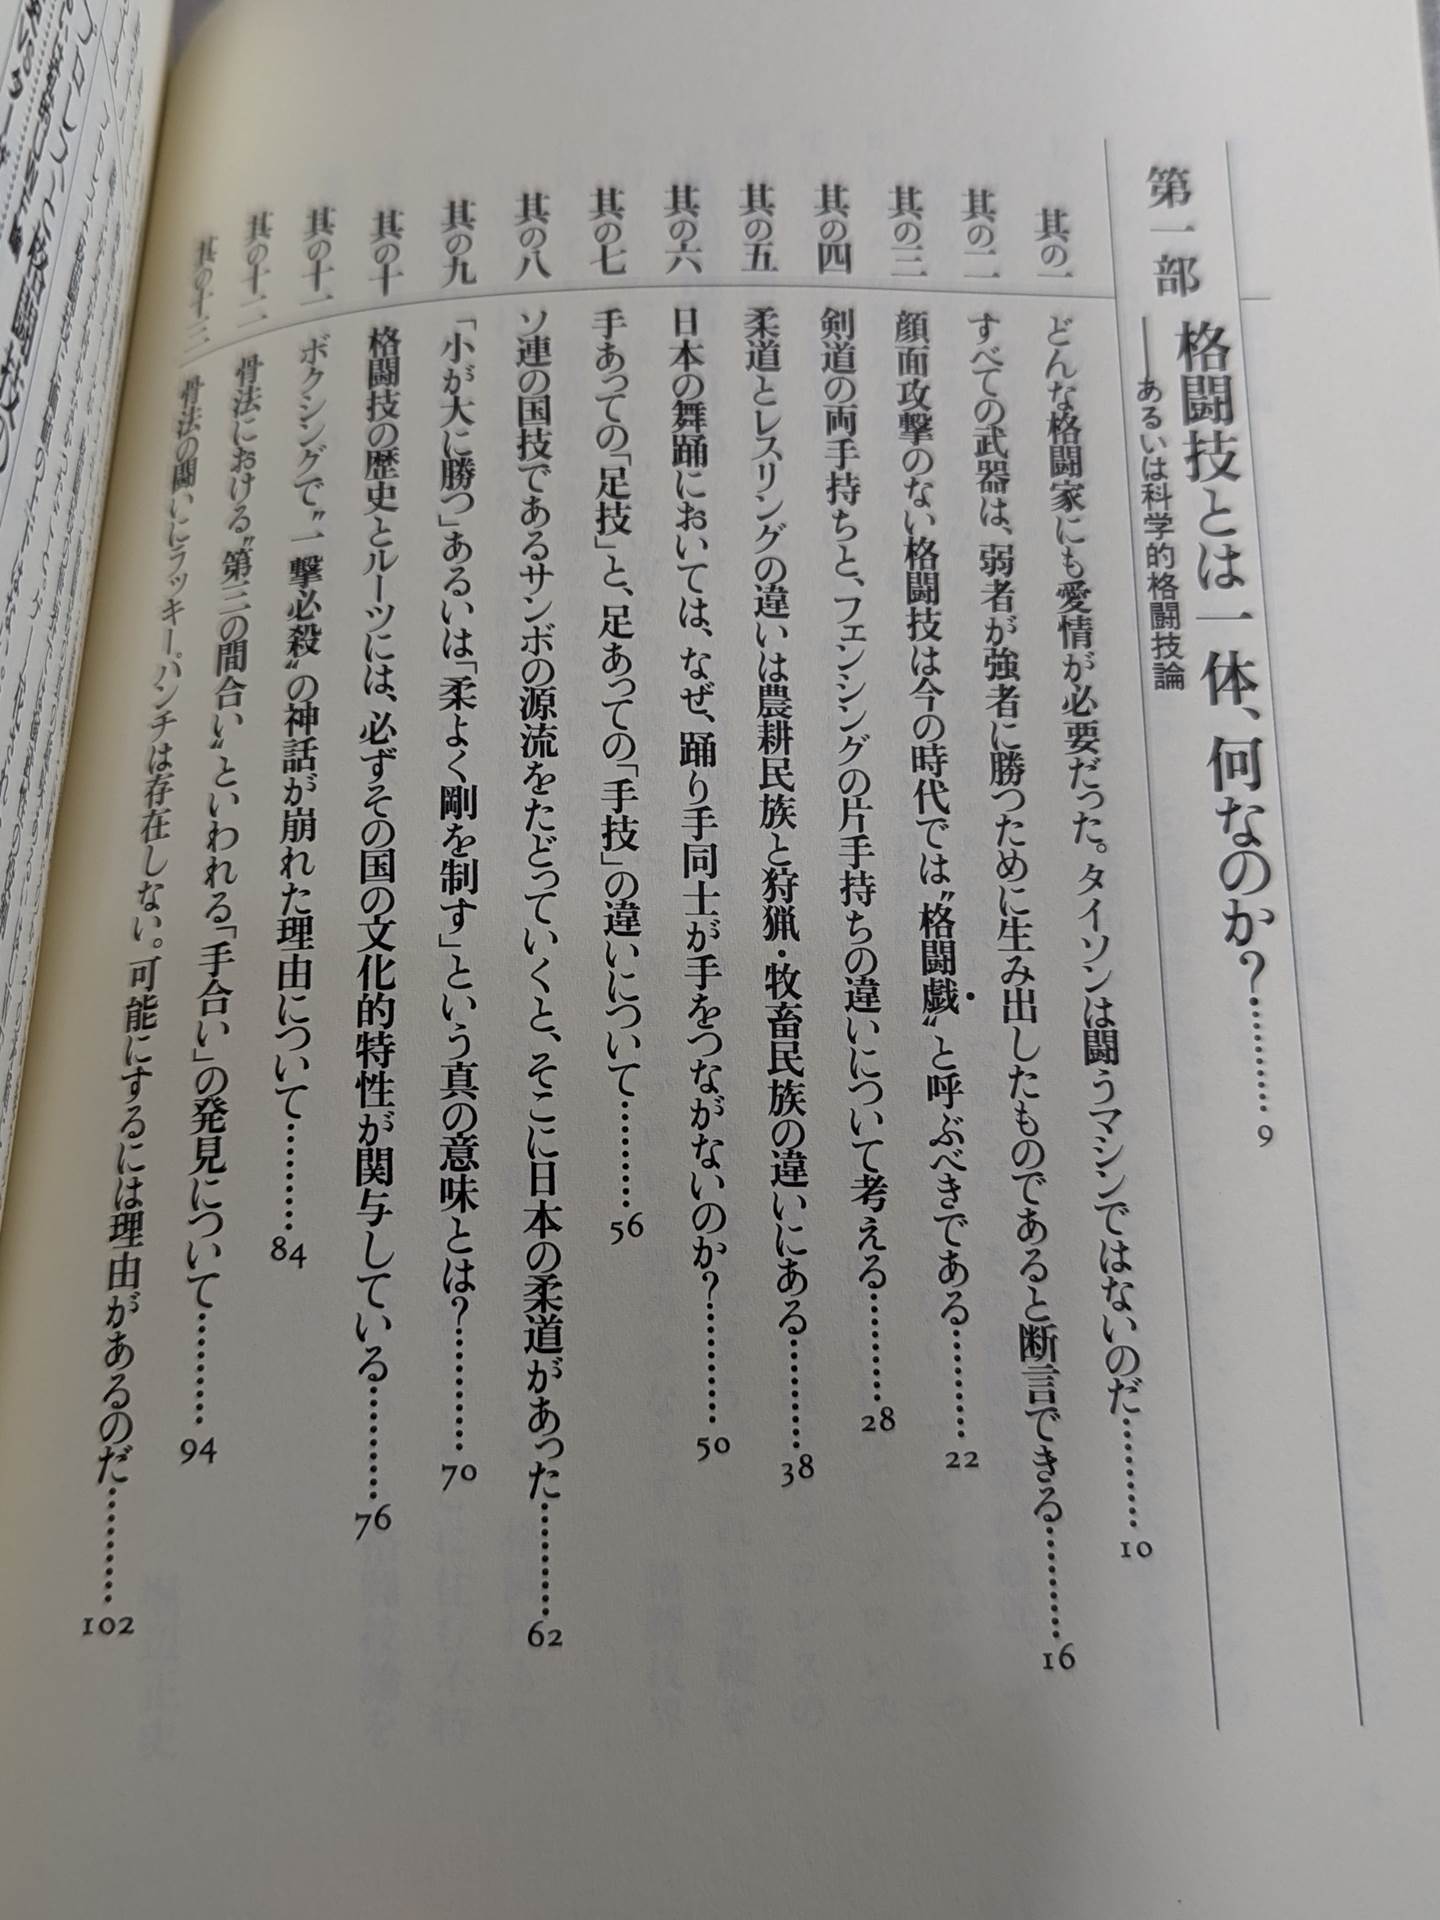 第一部 格闘技とは一体、何なのか?…………9
――あるいは科学的格闘技論
其の一 どんな格闘家にも愛情が必要だった。タイソンは闘うマシンではないのだ…………10
其の二 すべての武器は、弱者が強者に勝つために生み出したものであると断言できる…………16
其の三 顔面攻撃のない格闘技は今の時代では〝格闘戯〟と呼ぶべきである…………22
其の四 剣道の両手持ちと、フェンシングの片手持ちの違いについて考える…………28
其の五 柔道とレスリングの違いは農耕民族と狩猟・牧畜民族の違いにある…………38
其の六 日本の舞踊においては、なぜ、踊り手同士が手をつながないのか?…………50
其の七 手あっての「足技」と、足あっての「手技」の違いについて…………56
其の八 ソ連の国技であるサンボの源流をたどっていくと、そこに日本の柔道があった…………62
其の九 「小が大に勝つ」あるいは「柔よく剛を制す」という真の意味とは?…………70
其の十 格闘技の歴史とルーツには、必ずその国の文化的特性が関与している…………76
其の十一 ボクシングで〝一撃必殺〟の神話が崩れた理由について…………84
其の十二 骨法における〝第三の間合い〟といわれる「手合い」の発見について…………94
其の十三 骨法の闘いにラッキー・パンチは存在しない。可能にするには理由があるのだ…………102